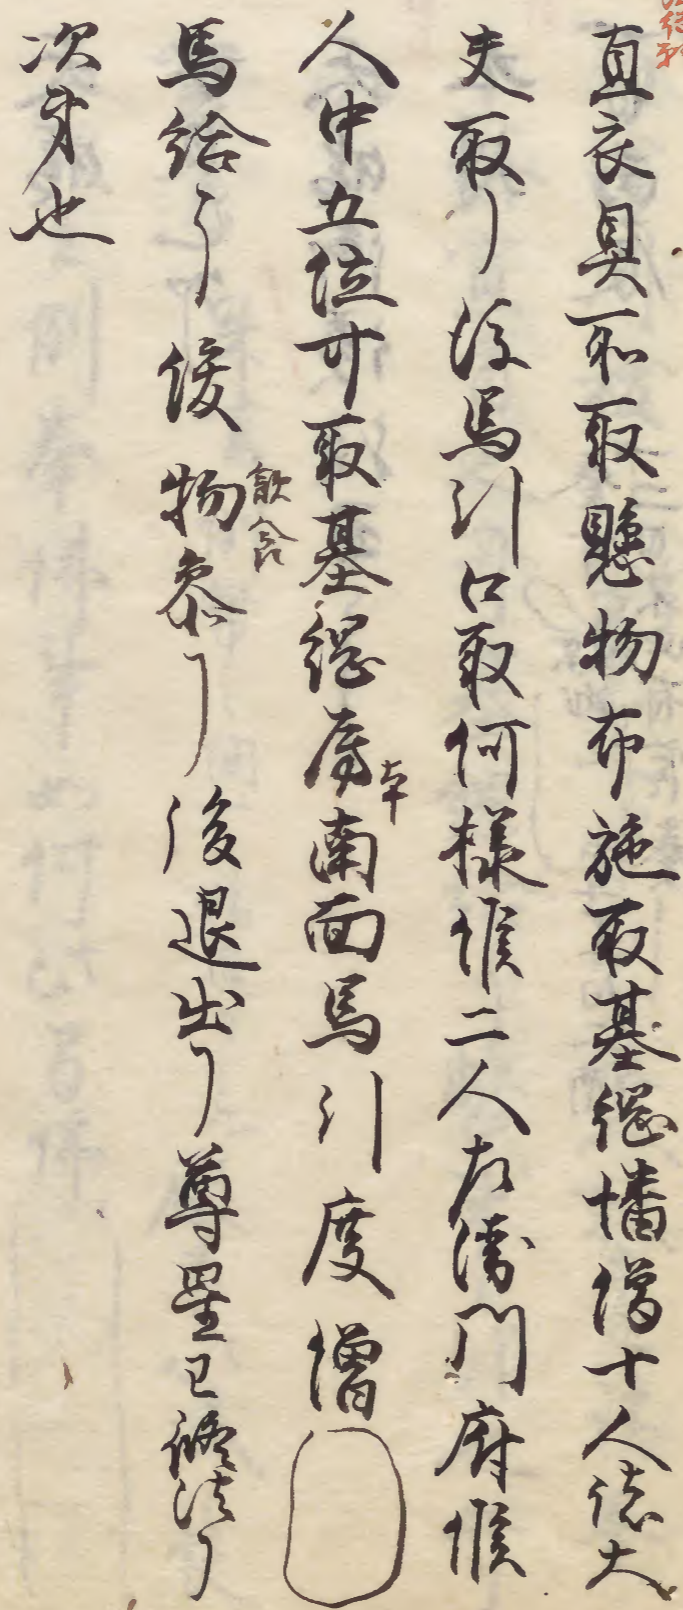 直衣具不取懸物布施取基綱幡僧十人諸大
夫取了次馬引口取何様候二人左衛門府候
人中五位可取基綱府南面馬引度僧
本
馬給了後物参了後退出了尊星已修法了
飲食
次第也